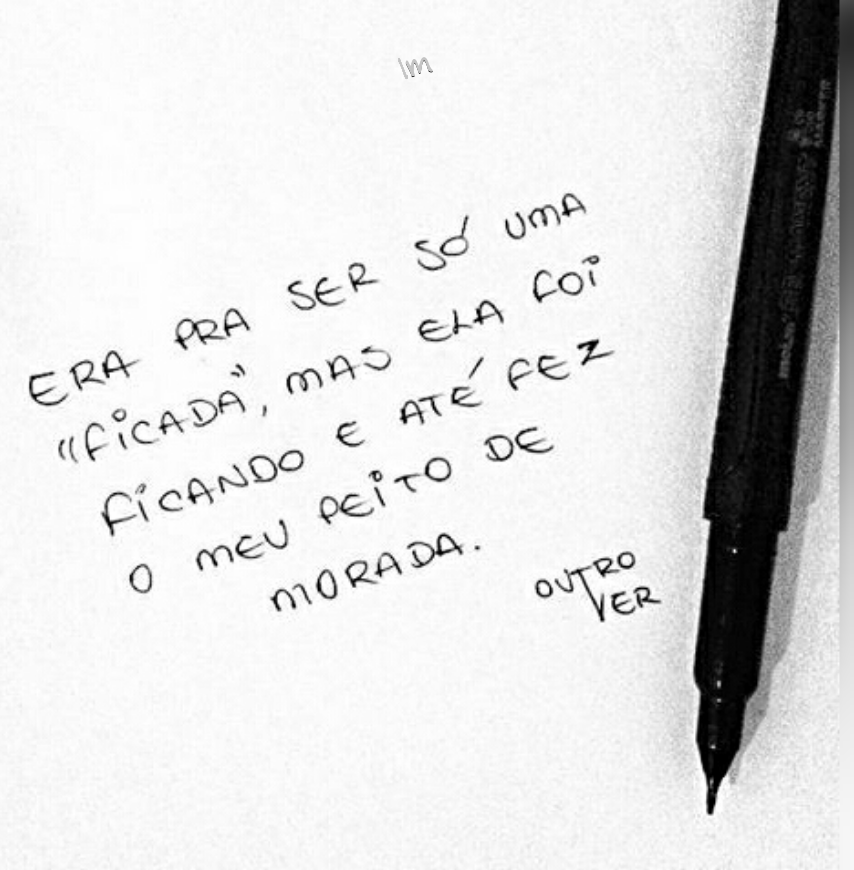 1m
ERA PRA SER SÓ UMA
"FiCADA", MAS ELA FOi
FiCANDO E ATÉ FEZ
O MEU PEiTO DE
MORADA.
OUTRO
VER